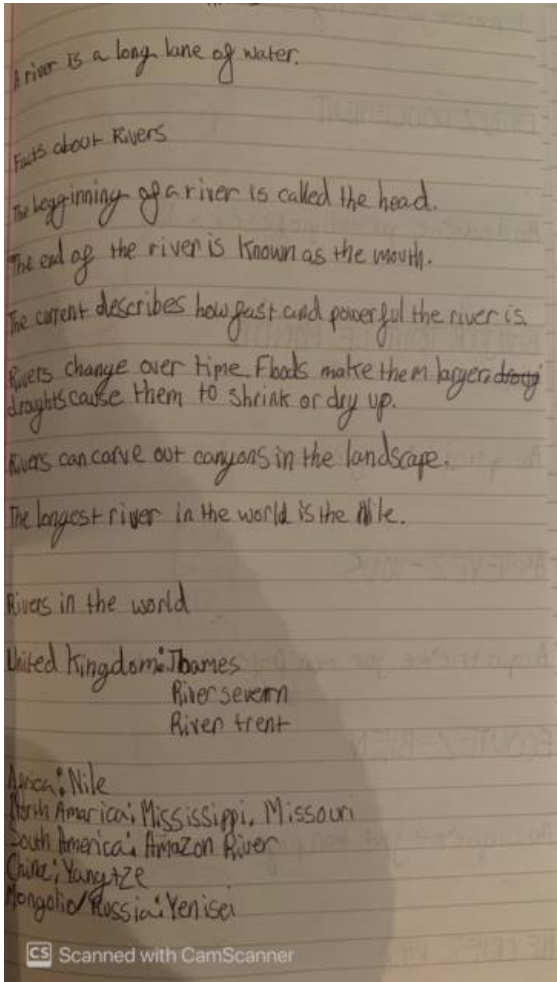 A river is a long lane of water.
Facts about Rivers
The begginning of a river is called the head.
The end of the river is known as the mouth.
The current describes how fast and powerful the river is.
Rivers change over time. Floods make them larger,
droughts cause them to shrink or dry up.
Rivers can carve out canyons in the landscape.
The longest river in the world is the Nile.
Rivers in the world
United Kingdom: Thames
River severn
River trent
Africa: Nile
North Amarica: Mississippi, Missouri
South America: Amazon River
China: Yangtze
Mongolia/Russia: Yenisei
CS Scanned with CamScanner